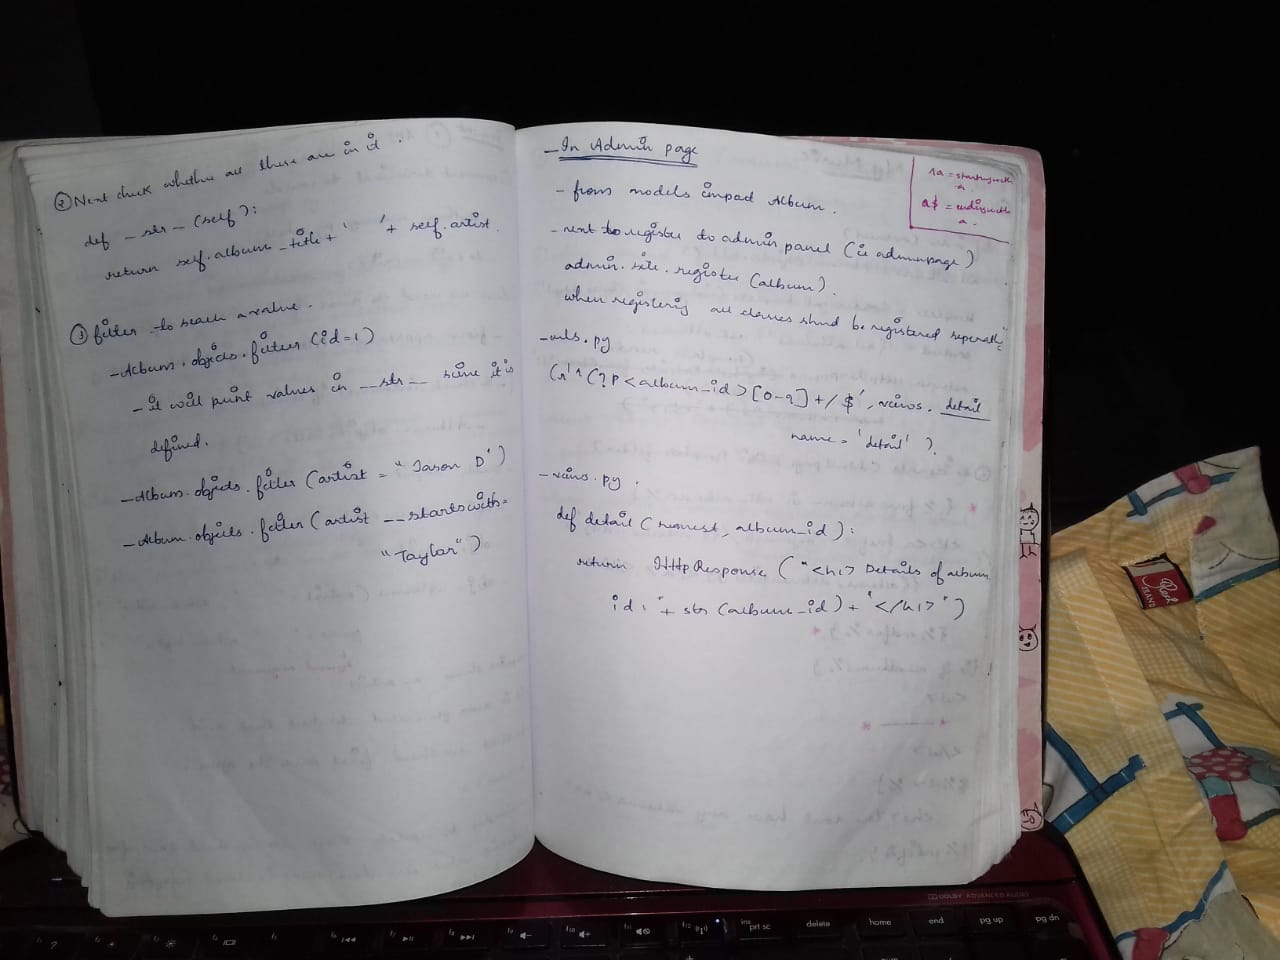 ② Next check whether all these are in it.
def _str_(self):
return self.album_title + ' ' + self.artist.
③ filter to search a value.
- Album.objects.filter(id=1)
- it will print values in __str__ since it is
defined.
- Album.objects.filter(artist = "Jason D")
- Album.objects.filter(artist __startswith=
"Taylor")
- In Admin page
- from models import Album.
- next to register to admin panel (ie adminpage)
admin.site.register(album).
when registering all classes
be registered
- urls.py
(r'^(?P<album_id>[0-9]+/$', views.detail
name = 'detail').
- views.py.
def detail(request, album_id):
return HttpResponse("<h1> Details of album
id: "+ str(album_id) + "</h1>")
^a = starting with
a.
a$ = ending with
a.
ins
prt sc
delete
home
end
pg up
pg dn
DOLBY ADVANCED AUDIO